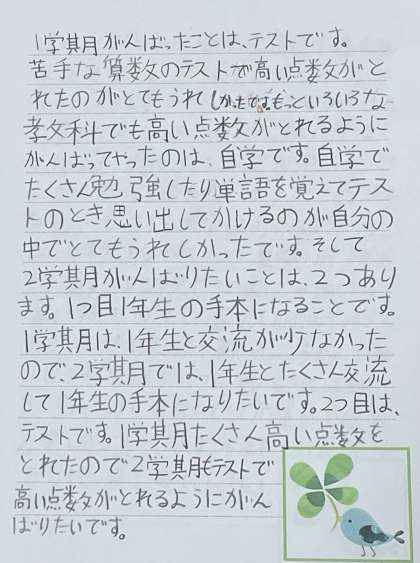 1学其月がんばったことは、テストです。
苦手な算数のテストで高い点数がと
れたのがとてもうれしかったではもっといろいろな
孝攵科でも高い点数がとれるように
がんばってやったのは、自学です。自学で
たくさん勉強したり単語を覚えてテス
トのとき思い出してかけるのが自分の
中でとてもうれしかったです。そして
2学其月がんばりたいことは、2つあり
ます。1つ目1年生の手本になることです。
1学其月は、1年生と交流が少なかった
ので、2学其月では、1年生とたくさん交流
して1年生の手本になりたいです。2つ目は、
テストです。1学其月たくさん高い点数を
とれたので2学其月もテストで
高い点数がとれるようにがん
ばりたいです。